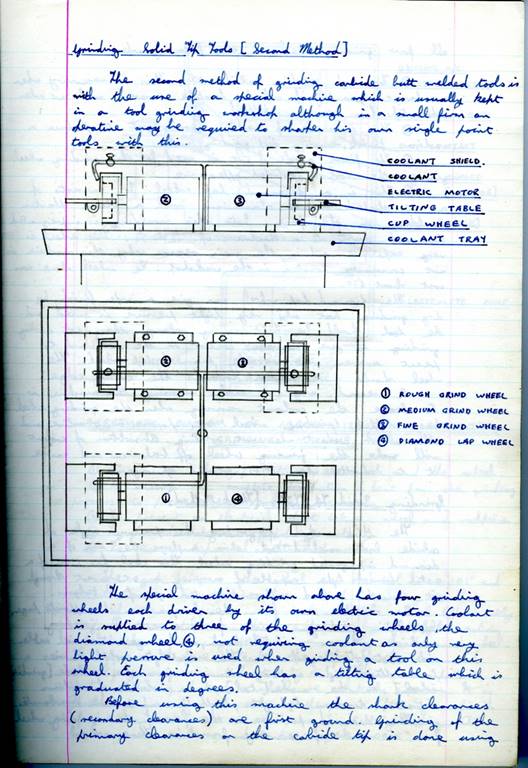 Grinding Solid Tip Tools [Second Method]
The second method of grinding carbide butt welded tools is
with the use of a special machine which is usually kept
in a tool grinding workshop although in a small firm an
operative may be required to sharpen his own single point
tools with this.
COOLANT SHIELD.
COOLANT
ELECTRIC MOTOR
TILTING TABLE
CUP WHEEL
COOLANT TRAY
② ③
② ③
① ④
① ROUGH GRIND WHEEL
② MEDIUM GRIND WHEEL
③ FINE GRIND WHEEL
④ DIAMOND LAP WHEEL
The special machine shown above has four grinding
wheels each driven by its own electric motor. Coolant
is supplied to three of the grinding wheels, the
diamond wheel, ④, not requiring coolant as only very
light pressure is used when grinding a tool on this
wheel. Each grinding wheel has a tilting table which is
graduated in degrees.
Before using this machine the shank clearances
(secondary clearances) are first ground. Grinding of the
primary clearances on the carbide tip is done using